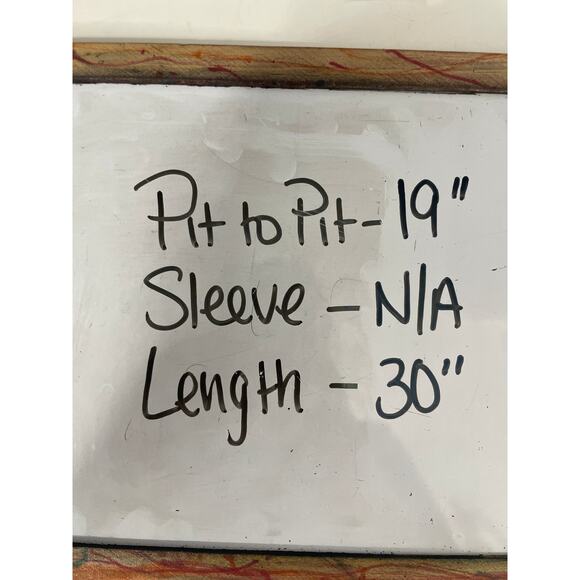 Pit to Pit - 19"
Sleeve - N/A
Length - 30"